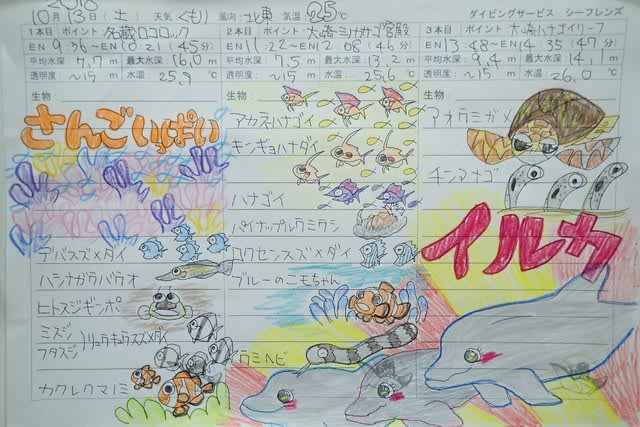 2018
10月13日(土) 天気(くもり) 風向：北東 気温 25℃ ダイビングサービス シーフレンズ
1本目 ポイント 名蔵ロロロック
EN 9:36〜EN 10:21(45分)
平均水深 7.7m 最大水深 16.0m
透明度 〜15m 水温：25.9℃
生物：
さんごいっぱい
デバスズメダイ
ハシナガウバウオ
ヒトスジギンポ
ミスジ
フタスジ
リュウキュウスズメダイ
カクレクマノミ
2本目 ポイント
EN 11:22〜EN 12:08(46分)
平均水深 7.5m 最大水深 13.2m
透明度 〜15m 水温：25.6℃
生物：
アカネハナゴイ
キンギョハナダイ
ハナゴイ
パイナップルウミウシ
ロクセンスズメダイ
ブルーのこもちゃん
ウミヘビ
3本目 ポイント 大崎ハナゴイリーフ
EN 13:48〜EN 14:35(47分)
平均水深 9.4m 最大水深 14.1m
透明度 〜15m 水温：26.0℃
生物：
アオウミガメ
チンアナゴ
イルカ